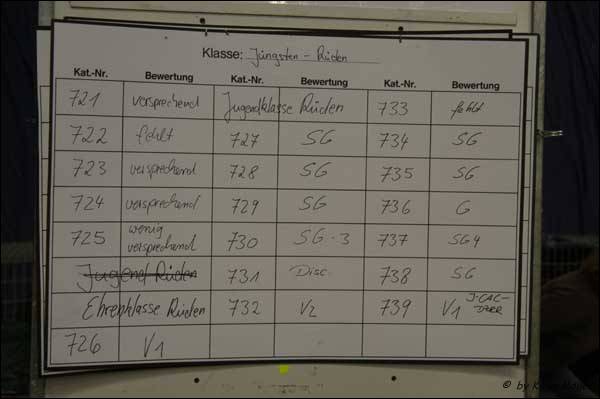 Klasse: Jüngsten - Rüden
Kat.-Nr. Bewertung Kat.-Nr. Bewertung Kat.-Nr. Bewertung
721 versprechend Jugendklasse Rüden 733 fehlt
722 fehlt 727 SG 734 SG
723 versprechend 728 SG 735 SG
724 versprechend 729 SG 736 G
725 wenig versprechend 730 SG-3 737 SG4
Jugend Rüden 731 Disc. 738 SG
Ehrenklasse Rüden 732 V2 739 V1 J-CAC-
726 V1
© by